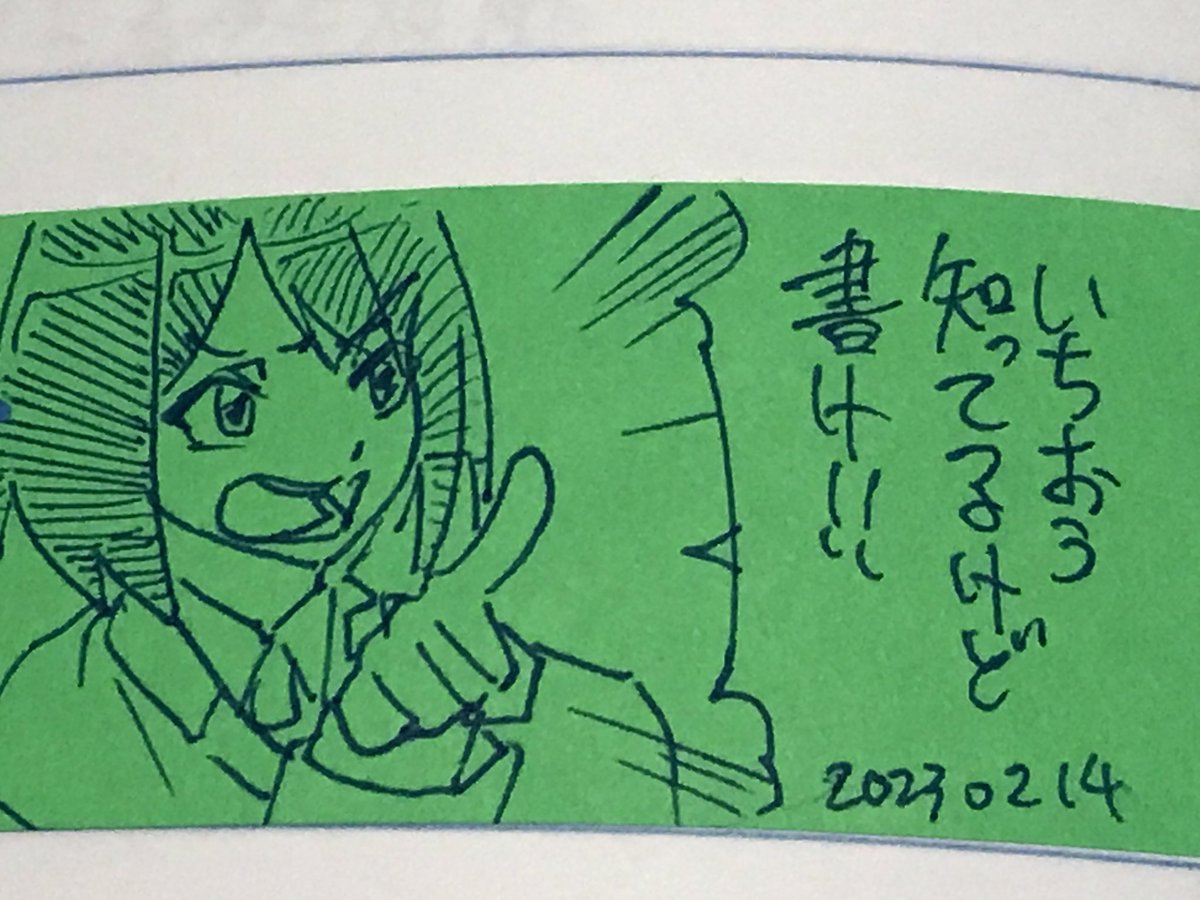 いちおう
知ってるけど
書け!!
20230214